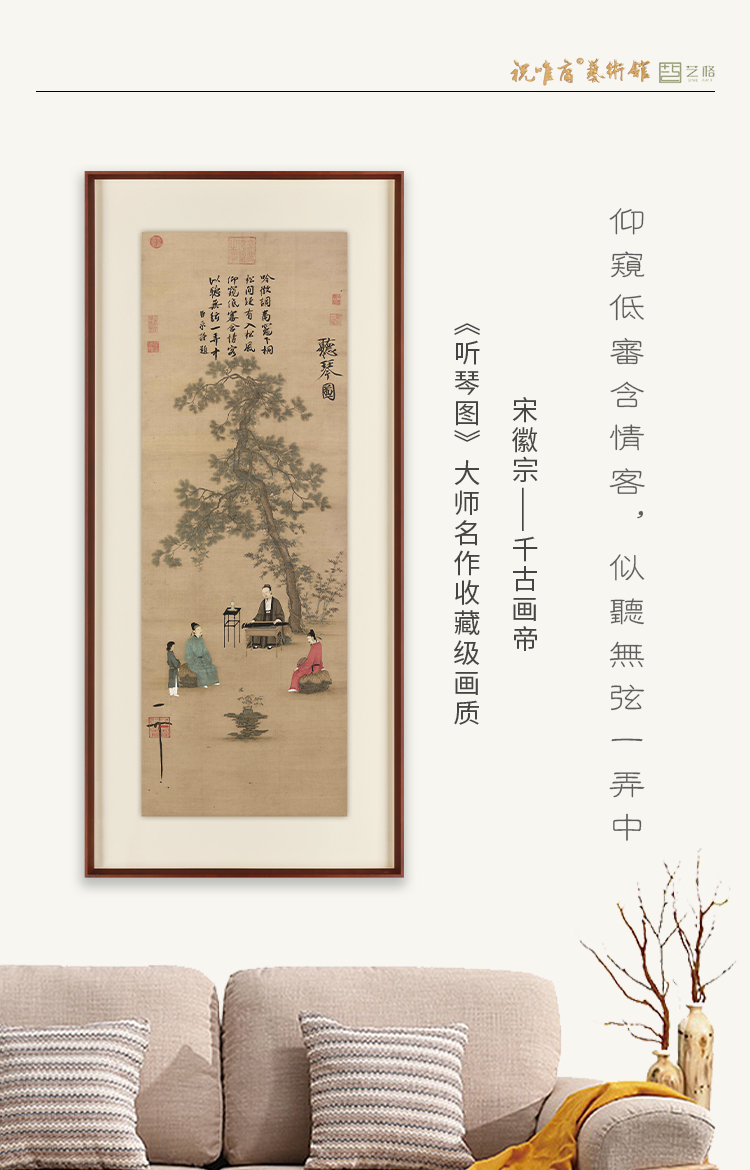 祝唯庸®藝術館 艺格
仰窺低審含情客，似聽無弦一弄中
宋徽宗——千古画帝
《听琴图》大师名作收藏级画质
聽琴圖
吟徵調商竈下桐
松間疑有入松風
仰窺低審含情客
以聽無絃一弄中
臣京謹題